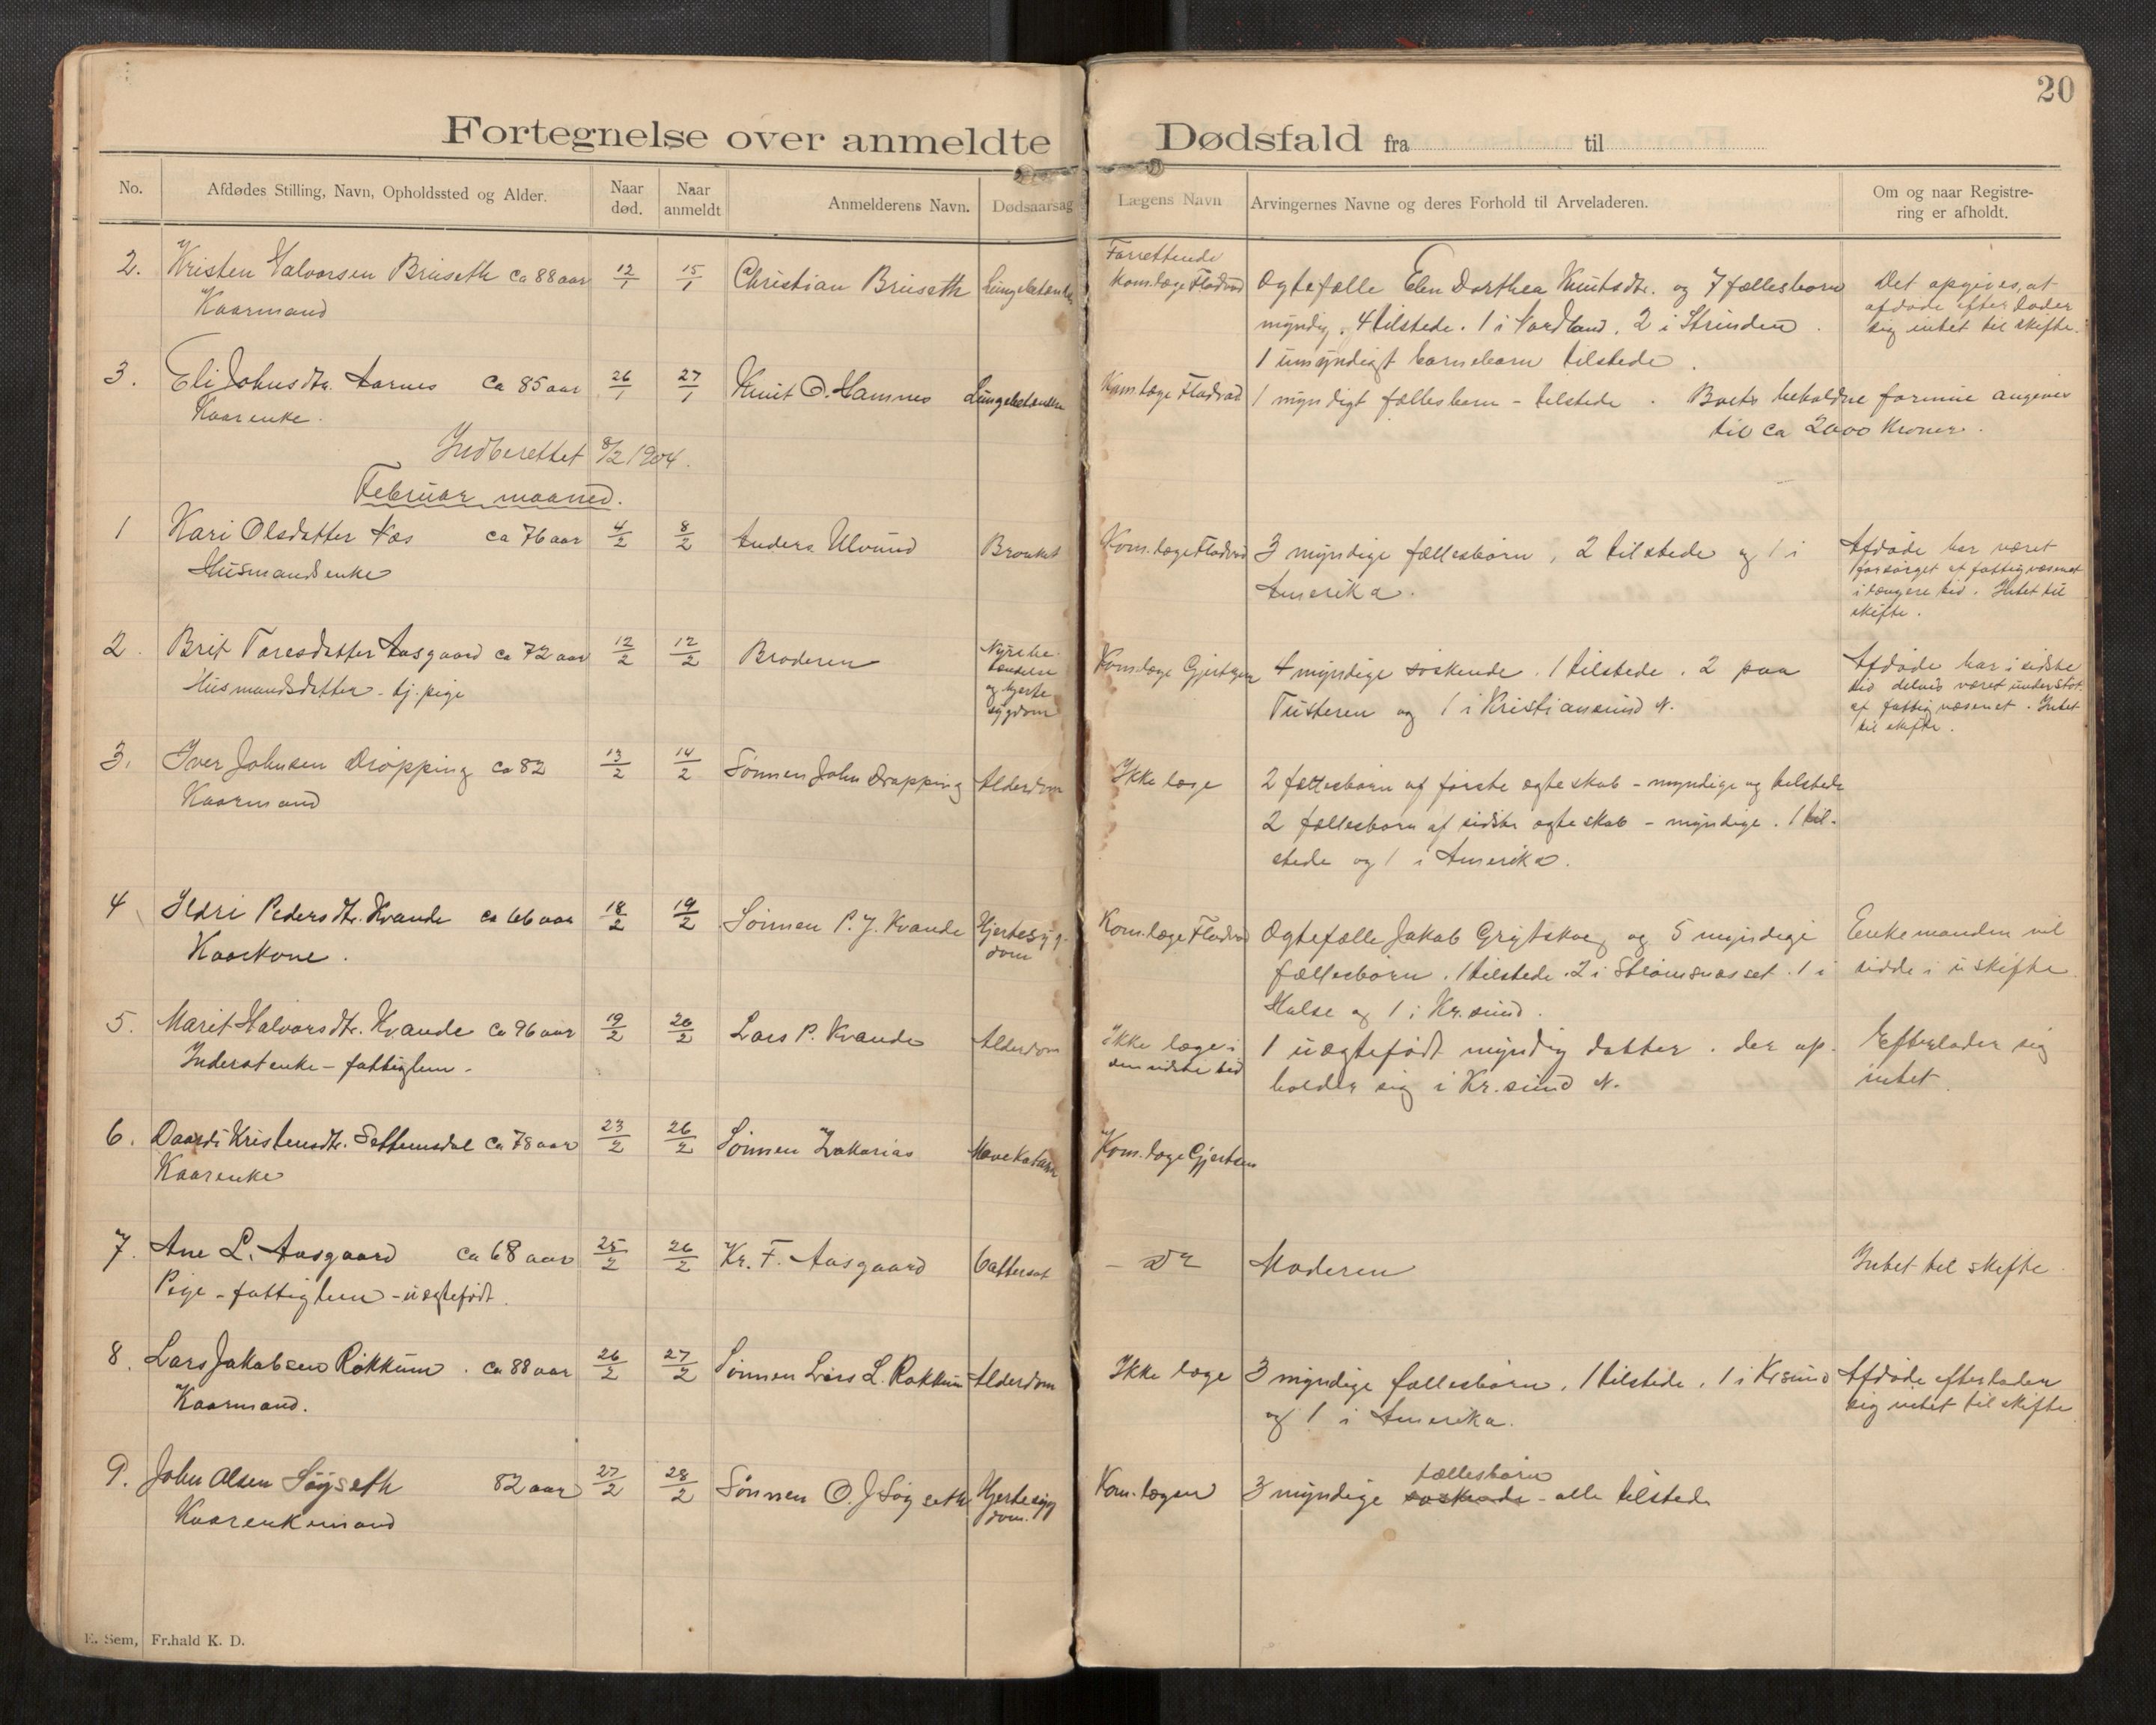 20
Fortegnelse over anmeldte Dødsfald fra til
No. Afdødes Stilling, Navn, Opholdssted og Alder. Naar død. Naar anmeldt Anmelderens Navn. Dødsaarsag Lægens Navn Arvingernes Navne og deres Forhold til Arveladeren. Om og naar Registrering er afholdt.
2. Kristen Halvorsen Bruseth ca 88 aar 12/1 15/1 Christian Bruseth
Kaarmand
Forrettende
Kom.læge Fladvad
Ogtefælle Elen Dorthea Knutsdtr. og 7 fællesbørn
myndig. 4 tilstede. 1 i Nordland. 2 i Strinden.
1 umyndigt barnebarn tilstede.
Det opgives, at
afdøde efterlader
sig intet til skifte.
3. Eli Johnsdtr. Aarnes ca 85 aar 26/1 27/1 Knut O. Hamnes Lungebetændelse
Kaarenke.
Kom.læge Fladvad
1 myndigt fællesbarn - tilstede. Boets beholdne formue angives
til ca 2000 Kroner.
Indberettet 8/2 1904.
Februar maaned.
1 Kari Olsdatter Næs ca 76 aar 4/2 8/2 Anders Ulvund Bronkit
Husmandsenke
Kom.læge Fladvad
3 myndige fællesbørn, 2 tilstede og 1 i
Amerika.
Afdøde har været
forsørget af fattigvæsenet
i længere tid. Intet til
skifte.
2. Brit Toresdatter Aasgaard ca 72 aar 12/2 12/2 Broderen
Husmandsdatter - tj. pige
Nyrebe-
tændelse
og hjerte
sygdom
Kom.læge Gjertsen
4 myndige søskende. 1 tilstede. 2 paa
Tusteren og 1 i Kristiansund N.
Afdøde har i sidste
tid delvis været understøt.
af fattigvæsenet. Intet
til skifte.
3. Iver Johnsen Drøpping ca 82 13/2 14/2 Sønnen John Drøpping Alderdom
Kaarmand
Ikke læge
2 fællesbørn af første ægteskab - myndige og tilstede
2 fællesbørn af sidste ægteskab - myndige. 1 til-
stede og 1 i Amerika.
4 Ildri Pedersdtr. Kvande ca 66 aar 18/2 19/2 Sønnen P. J. Kvande Hjertesyg-
dom
Kaarkone.
Kom.læge Fladvad
Ogtefælle Jakob Grytskog og 5 myndige
fællesbørn. 1 tilstede. 2 i Strømsnæsset. 1 i
Halse og 1 i Kr.sund.
Enkemanden vil
sidde i uskifte
5. Marit Halvorsdtr. Kvande ca 96 aar 19/2 20/2 Lars P. Kvande Alderdom
Inderstenke - fattiglem.
Ikke læge i
den sidste tid
1 uægtefødt myndig datter. der op-
holder sig i Kr.sund N.
Efterlader sig
intet.
6. Kristensdtr. Settemsdal ca 78 aar 23/2 26/2 Sønnen Zakarias Mavekatarr
Kaarenke
Kom.læge Gjertsen
7. Ane L. Aasgaard ca 68 aar 25/2 26/2 Kr. F. Aasgaard
Pige - fattiglem - uægtefødt.
Moderen
Intet til skifte.
8. Lars Jakobsen Røkkum. ca 88 aar 26/2 27/2 Sønnen Lars L. Røkkum Alderdom
Kaarmand.
Ikke læge
3 myndige fællesbørn. 1 tilstede. 1 i Krsund
og 1 i Amerika.
Afdøde efterlader
sig intet til skifte
9. John Olsen Søyseth 82 aar 27/2 28/2 Sønnen O. J Søyseth Hjertesyg
dom.
Kaarenkemand
Kom.lægen
fællesbørn
3 myndige søskende - alle tilstede
E. Sem, Fr.hald K. D.